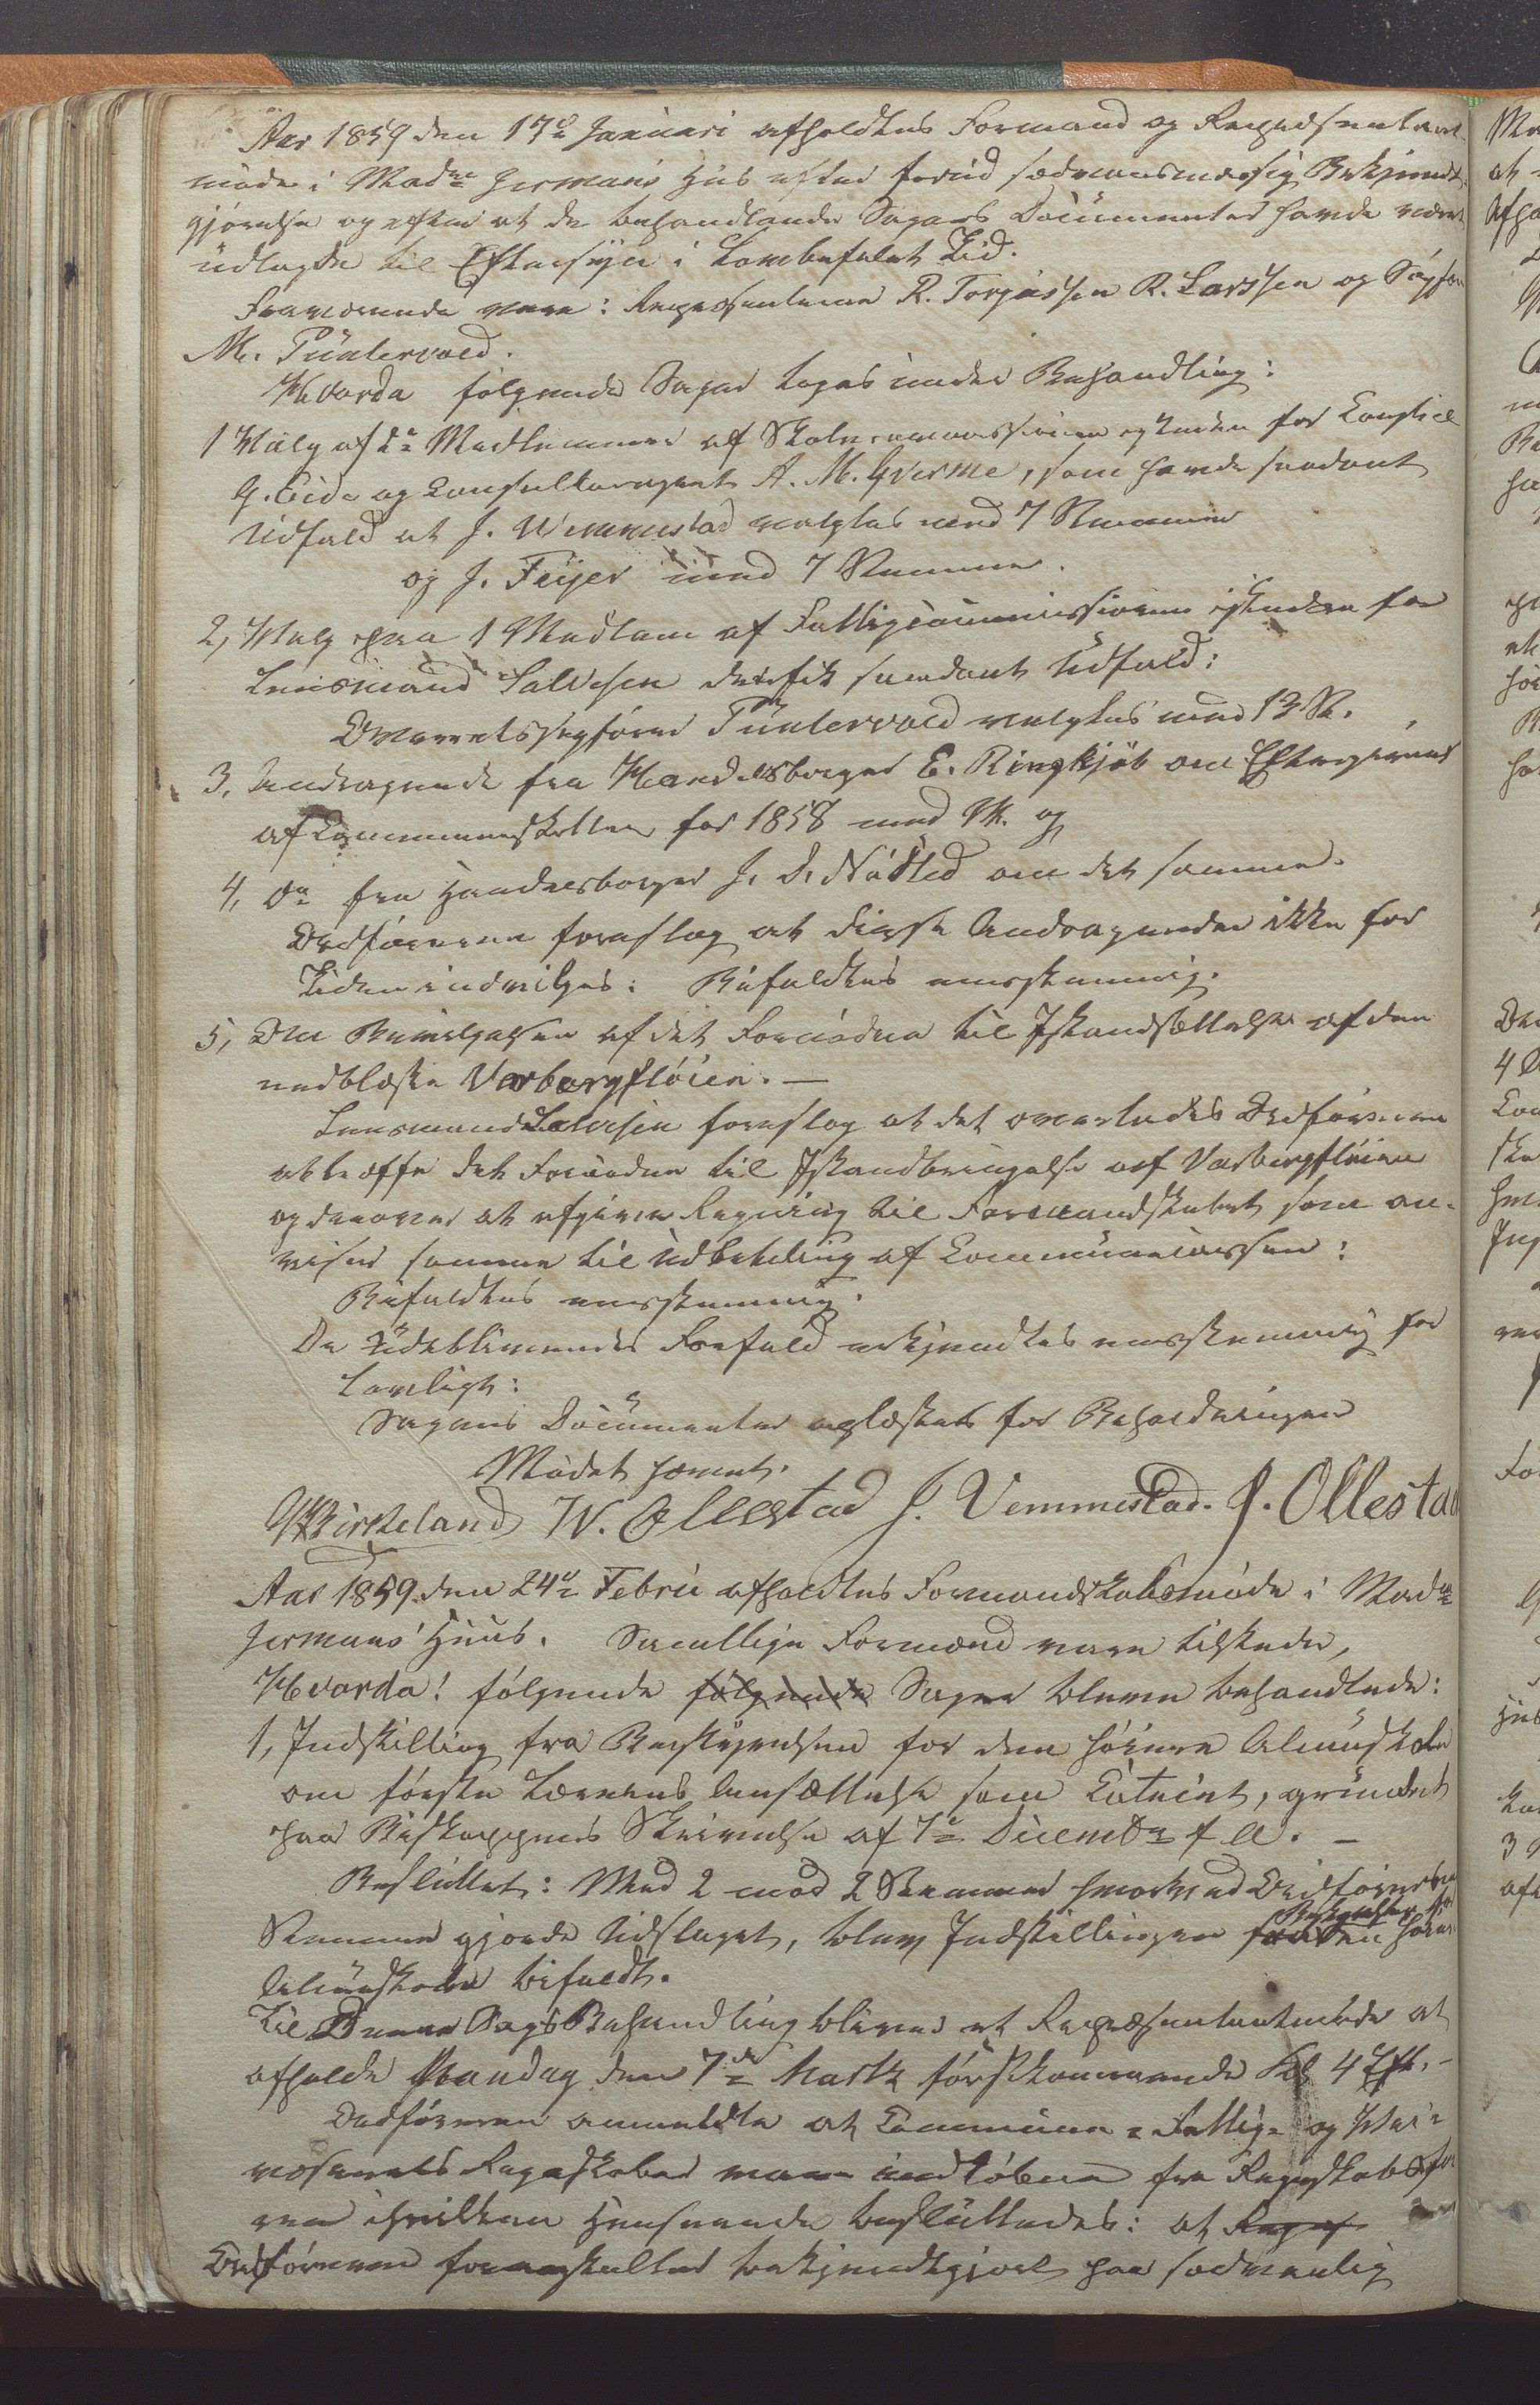 Aar 1859 den 17de Januari afholdtes Formand og Repræsentant
møde i Madme Jermans Huus efter forud sædvansmæssig Bekjendt
gjørelse og efter at de behandlende Sagers Documenter havde været
udlagde til Eftersyn i Lovbefalet Tid.
Fraværende vare: Repræsentanterne R. Torgussen R. Larssen og Sagfør
M. Püntervold.
Hvorda følgende Sager toges under Behandling:
1 Valg af 2de Medlemmer af Skolecommissionen istæden for
G. Eide og A. M. Gverme, som havde saadant
Udfald at J. Wemmestad valgtes med 7 Stemmer
og J. Feyer med 7 Stemmer.
2, Valg paa 1 Medlem af Fattigcommissionen istæden for
Lensmand Salvesen der fik saadant Udfald:
Overretssagfører Püntervold valgtes med 13 St.
3, Andragende fra Handelsborger E. Ringkjøb om Eftergivende
af Communeskatten for 1858 med og
4, Do fra Handelsborger J. D. Nödled om det samme.
Ordføreren foreslog at disse Andragender ikke for
Tiden indvilges: Bifaldtes eenstemmig.
5, Om Bevilgelsen af det Fornødne til Istandsættelse af den
nedblæste Varbergfløien. —
Lensmand Salvesen foreslog at det overlades Ordføreren
at træffe det Fornødne til Istandbringelse af Varbergfløien
og derover at afgive Regning til Formandskabet som an-
viser samme til Udbetaling af Communecassen:
Bifaldtes eenstemmig.
De Udeblivendes Forfald erkjendtes eenstemmig for
Lovligt:
Sagens Documenter oplæstes for Beholdningen
Mødet hævet.
Birkeland W. Ollestad J. Vemmestad. J. Ollestad
Aar 1859 den 24de Febru afholdtes Formandskabsmøde i Madme
Jermans' Huus. Samtlige Formænd vare tilstede,
Hvorda! følgende følgende Sager bleve behandlede:
1, Indstilling fra Bestyrelsen for den høiere Almuskole
om første Lærerens Ansættelse som , grundet
paa Biskoppens Skrivelse af 7de Decembr f A. —
Besluttet: Med 2 mod 2 Stemmer hvorved Ordførerens
Stemme gjorde Udslaget, blev Indstillingen fra Bestyrelsen for den høiere
Almuskole bifaldt.
Til Denne Sags Behandling bliver et Repræsentantmøde at
afholde Mandag den 7de Marts førstkommende Kl 4 Eft. -
Ordføreren anmeldte at Commune- Fattig- og Vei-
væsenets Regnskaber vare indløbne fra Regnskabsfør
ren i hvilken Henseende besluttedes: at Regns
Ordføreren foranstalter bekjendtgjort paa sædvanlig